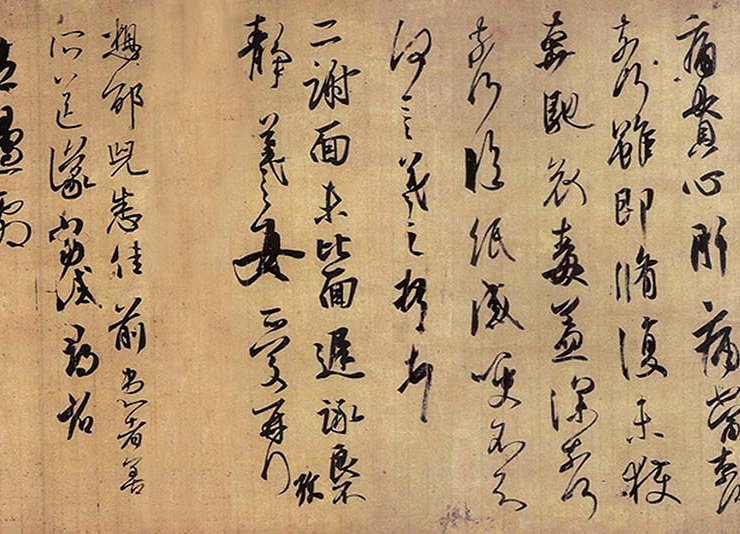 痛貫心肝痛當奈何
奈何雖即脩復未獲
奔馳哀毒益深奈何
奈何臨紙感哽不知
何言羲之頓首頓首
二謝面未比面遲詠良不
靜羲之女愛再拜
想邵兒悉佳前患者善
所送議當試尋省
左邊劇